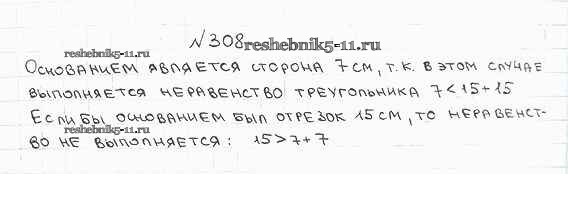 №308 reshebnik5-11.ru
reshebnik5-11.ru
Основанием является сторона 7 см, т.к. в этом случае
выполняется неравенство треугольника 7 < 15 + 15
Если бы основанием был отрезок 15 см, то неравенст-
reshebnik5-11.ru
во не выполняется: 15 > 7 + 7